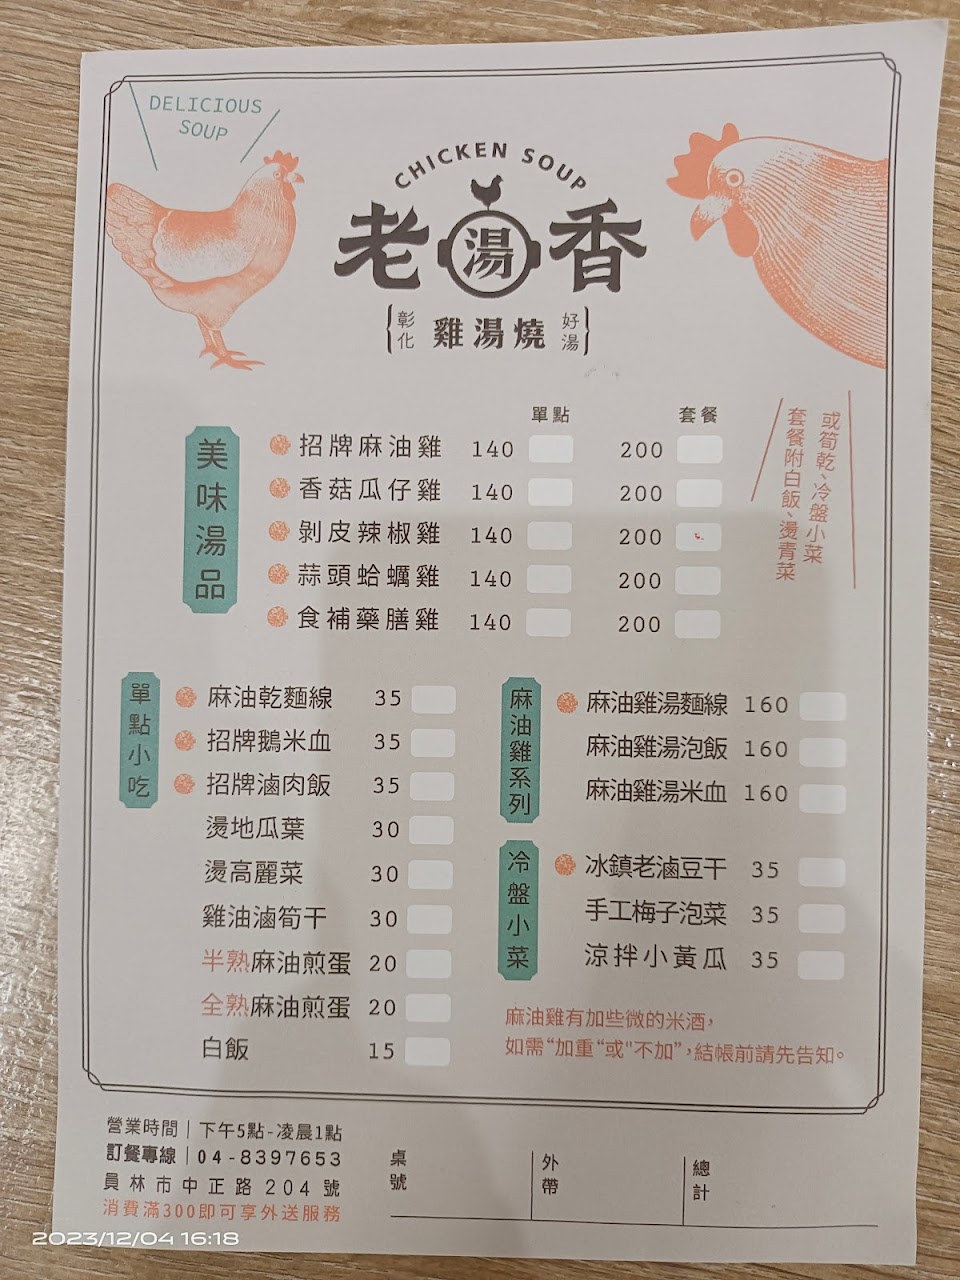 DELICIOUS
SOUP
CHICKEN SOUP
老湯香
彰化 雞湯燒 好湯
單點 套餐
美味湯品
招牌麻油雞 140 200
香菇瓜仔雞 140 200
剝皮辣椒雞 140 200
蒜頭蛤蠣雞 140 200
食補藥膳雞 140 200
套餐附白飯、燙青菜
或筍乾、冷盤小菜
單點小吃
麻油乾麵線 35
招牌鵝米血 35
招牌滷肉飯 35
燙地瓜葉 30
燙高麗菜 30
雞油滷筍干 30
半熟麻油煎蛋 20
全熟麻油煎蛋 20
白飯 15
麻油雞系列
麻油雞湯麵線 160
麻油雞湯泡飯 160
麻油雞湯米血 160
冷盤小菜
冰鎮老滷豆干 35
手工梅子泡菜 35
涼拌小黃瓜 35
麻油雞有加些微的米酒,
如需“加重“或"不加”,結帳前請先告知。
營業時間｜下午5點-凌晨1點
訂餐專線｜04-8397653
員林市中正路204號
消費滿300即可享外送服務
桌號 外帶 總計
2023/12/04 16:18